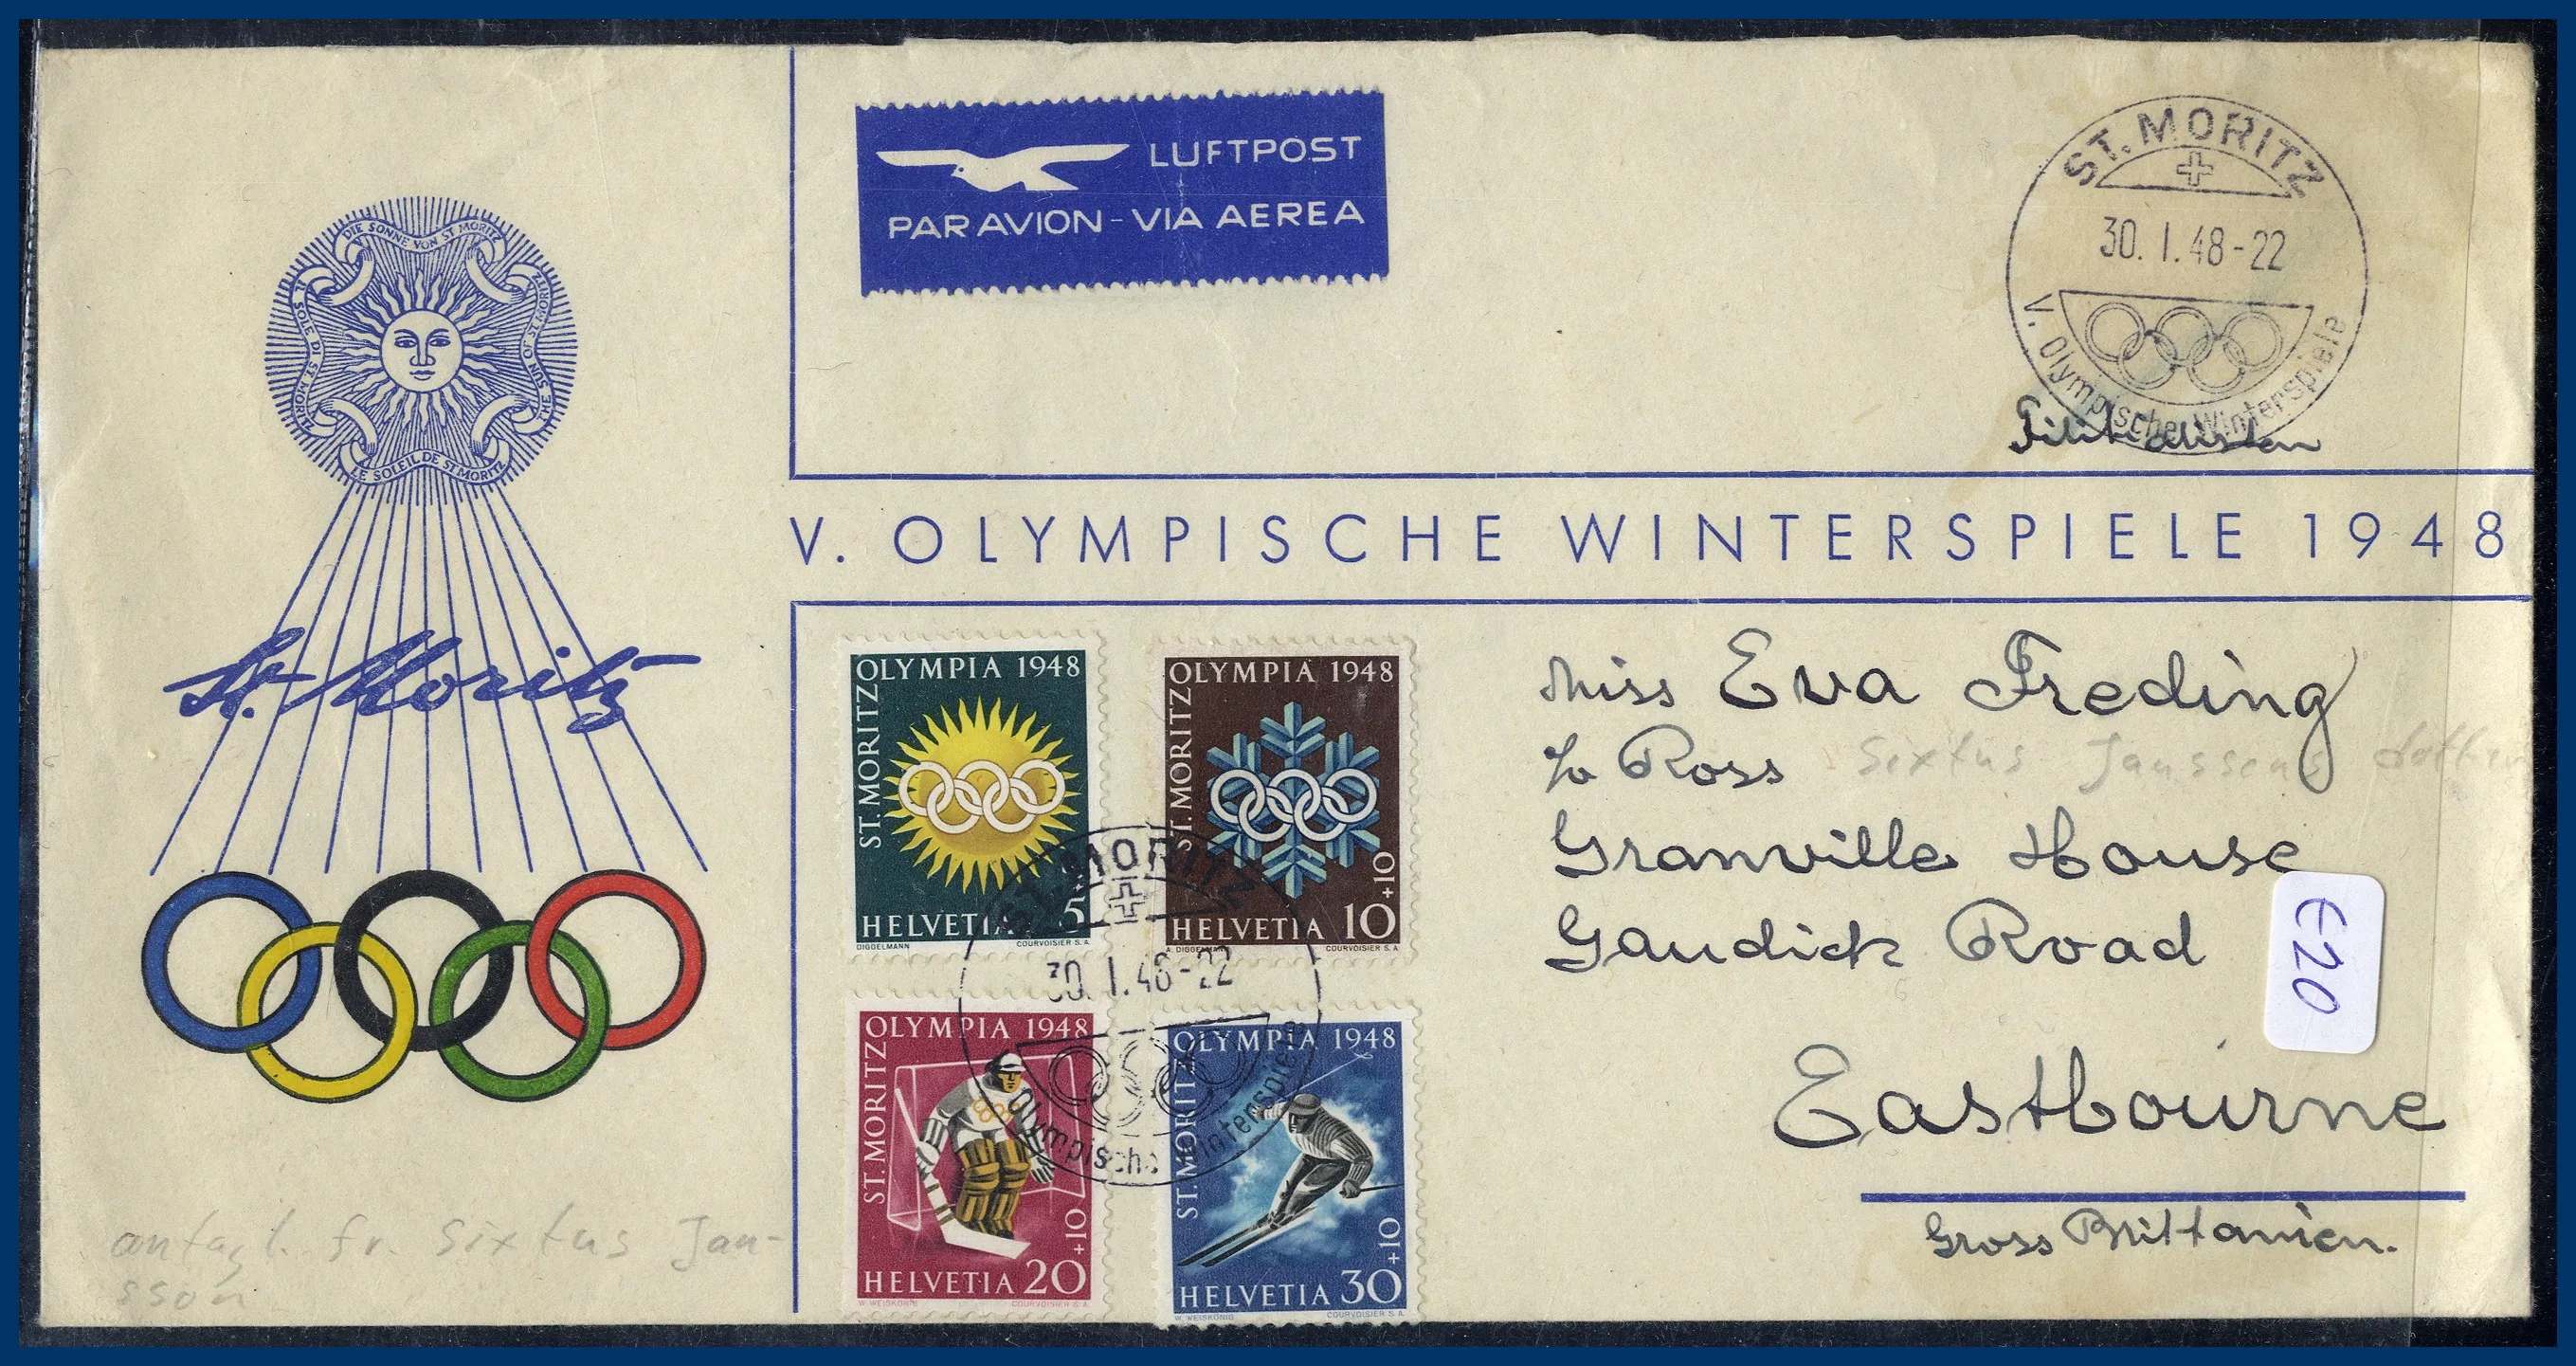 DIE SONNE VON ST MORITZ
IL SOLE DI ST. MORITZ
THE SUN OF ST. MORITZ
LE SOLEIL DE ST. MORITZ
St. Moritz
LUFTPOST
PAR AVION - VIA AEREA
ST. MORITZ
30. I. 48-22
V. Olympische Winterspiele
V. OLYMPISCHE WINTERSPIELE 1948
OLYMPIA 1948
ST. MORITZ
5
HELVETIA
DIGGELMANN
COURVOISIER S.A.
OLYMPIA 1948
ST. MORITZ
10+10
HELVETIA
A. DIGGELMANN
COURVOISIER S.A.
ST. MORITZ
30. I. 48-22
Olympische Winterspiele
OLYMPIA 1948
ST. MORITZ
20+10
HELVETIA
W. WEISKÖNIG
COURVOISIER S.A.
OLYMPIA 1948
ST. MORITZ
30+10
HELVETIA
W. WEISKÖNIG
COURVOISIER S.A.
Miss Eva Freding
c/o Ross Sixtus Janssons dotter
Granville House
Gaudick Road
Eastbourne
Gross Brittanien.
€20
antagl. fr. Sixtus Jan-
sson